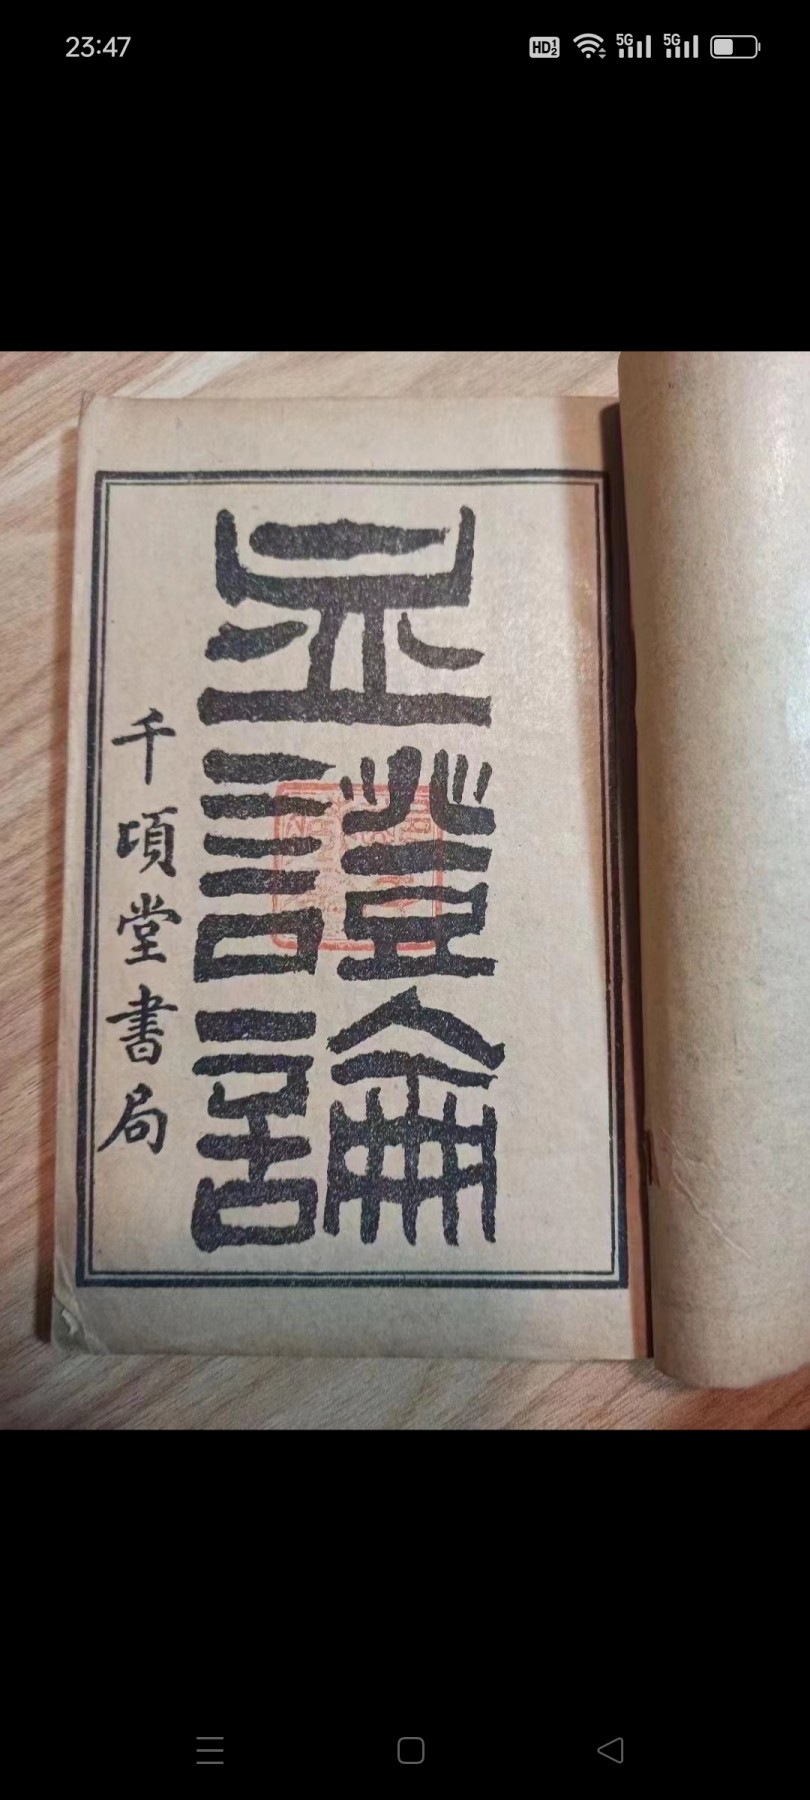 23:47
HD12 5G 5G
血證論
千頃堂書局